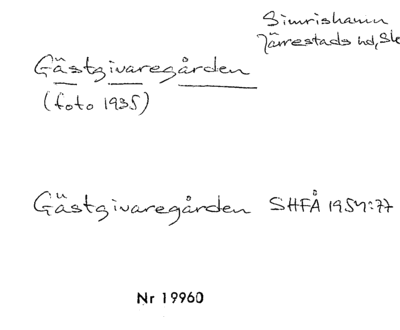 Simrishamn
Järrestads hd, Sk
Gästgivaregården
(foto 1935)
Gästgivaregården SHFÅ 1954:77
Nr 19960